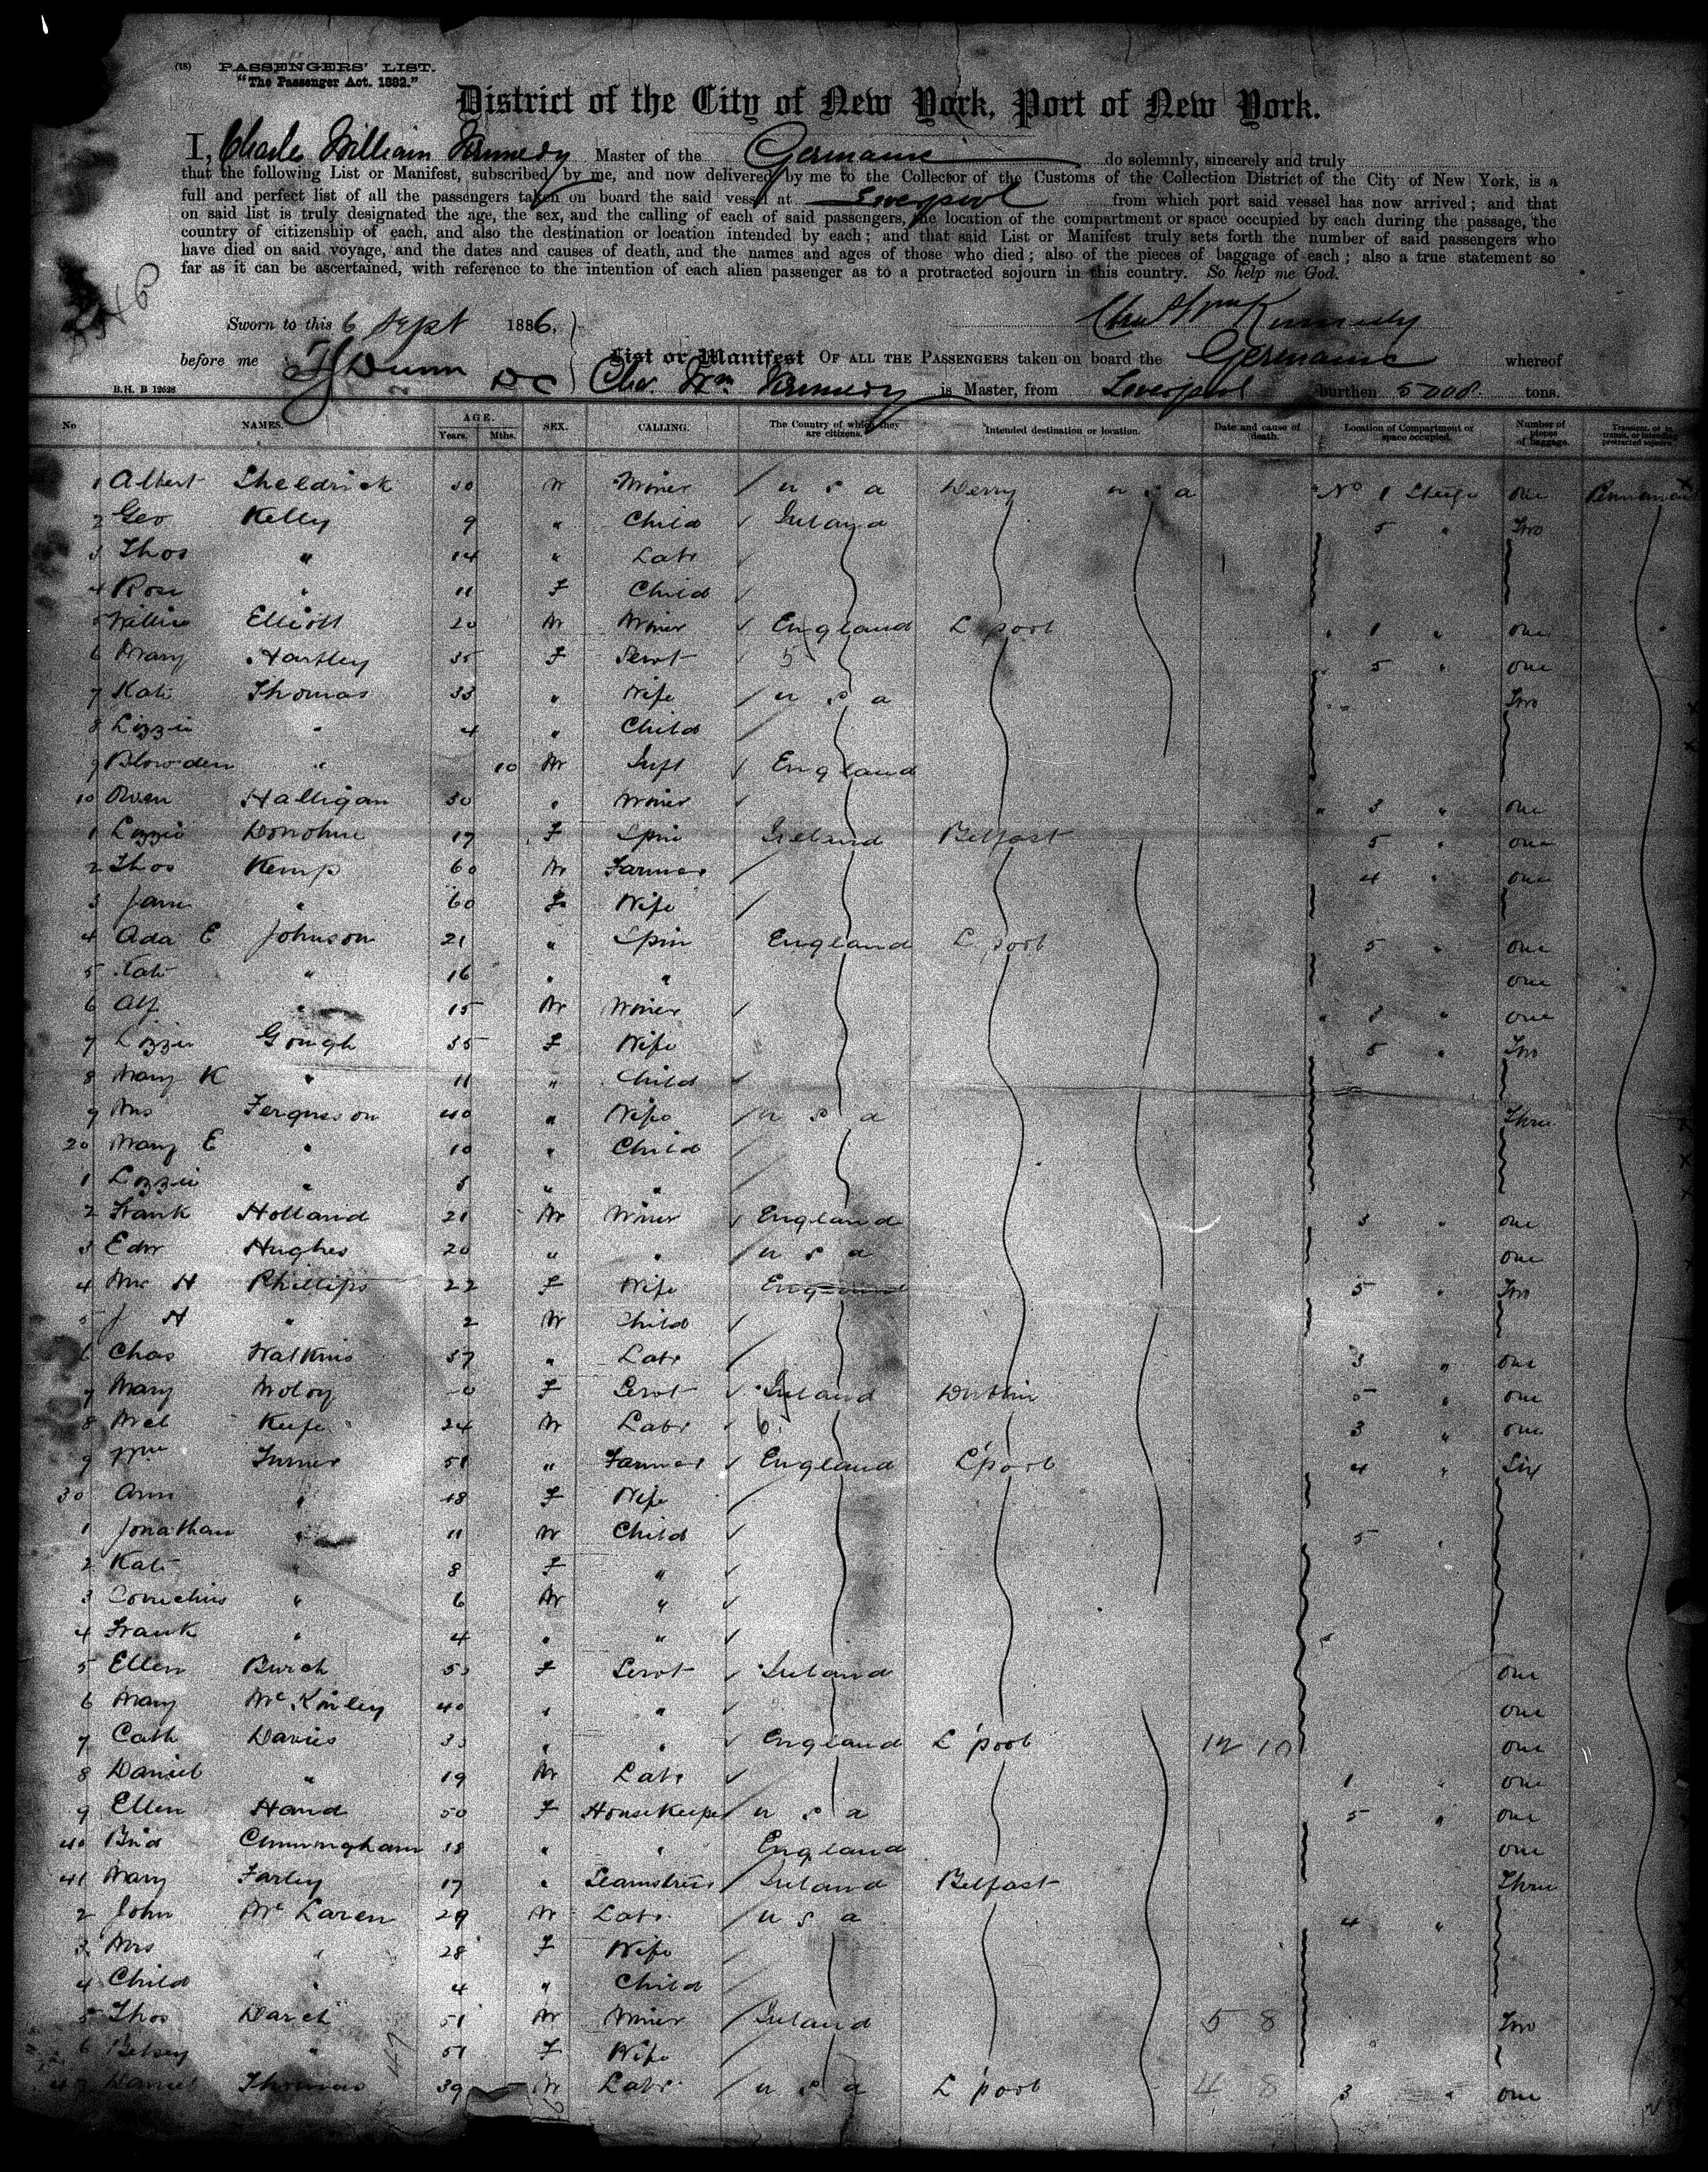 (18) PASSENGERS' LIST.
"The Passenger Act. 1882."
District of the City of New York, Port of New York.
I, Charles William Kennedy Master of the Germanic do solemnly, sincerely and truly
that the following List or Manifest, subscribed by me, and now delivered by me to the Collector of the Customs of the Collection District of the City of New York, is a
full and perfect list of all the passengers taken on board the said vessel at Liverpool from which port said vessel has now arrived; and that
on said list is truly designated the age, the sex, and the calling of each of said passengers, the location of the compartment or space occupied by each during the passage, the
country of citizenship of each, and also the destination or location intended by each; and that said List or Manifest truly sets forth the number of said passengers who
have died on said voyage, and the dates and causes of death, and the names and ages of those who died; also of the pieces of baggage of each; also a true statement so
far as it can be ascertained, with reference to the intention of each alien passenger as to a protracted sojourn in this country. So help me God.
Sworn to this 6 Sept 1886, Chas Wm Kennedy
before me List or Manifest OF ALL THE PASSENGERS taken on board the Germanic whereof
B.H. B 12628 Dunn DC Chas. Wm Kennedy is Master, from Liverpool burthen 5008 tons.
No NAMES. AGE. Years. Mths. SEX. CALLING. The Country of which they are citizens. Intended destination or location. Date and cause of death. Location of Compartment or space occupied. Number of pieces of baggage. Transient, or in transit, or intending protracted sojourn.
1 Albert Sheldrick 30 M Miner / U S A Derry U S A No 1 Steige One Permanent
2 Geo Kelly 9 " Child Ireland 5 " Two
3 Thos " 14 " Labr
4 Rose " 11 F Child
5 Willie Elliott 20 M Miner England L'pool 1 " One
6 Mary Hartley 35 F Servt 5 5 " One
7 Kate Thomas 33 " Wife / U S A Two
8 Lizzie " 4 " Child
9 Blowden " 10 M Inft England
10 Owen Halligan 30 " Miner " 3 " One
1 Lizzie Donohue 17 F Spin Ireland Belfast 5 " One
2 Thos Kemp 60 M Farmer 4 " One
3 Jane " 60 F Wife
4 Ada E Johnson 21 " Spin England L'pool 5 " One
5 Kate " 16 " " One
6 Alf " 15 M Miner " 3 " One
7 Lizzie Gough 35 F Wife 5 " Two
8 Mary K " 11 " Child
9 Mrs Fergusson 40 " Wife / U S A Three
20 Mary E " 10 " Child
1 Lizzie " "
2 Frank Holland 21 M Miner England 3 " One
3 Edw Hughes 20 " " / U S A One
4 Mrs H Phillips 22 F Wife England 5 " Two
5 J H " 2 M Child
6 Chas Watkins 37 " Labr 3 " One
7 Mary Moloy F Servt Ireland Dublin 5 " One
8 Mcl Keefe 24 M Labr 6 3 " One
9 Wm Turner 51 " Farmer England L'pool 4 " Six
30 Ann " 48 F Wife
1 Jonathan " 11 M Child 5 "
2 Kate " 8 F "
3 Cornelius " 6 M "
4 Frank " 4 " "
5 Ellen Burch F Servt Ireland One
6 Mary McKinley 40 " " One
7 Cath Davies 33 " " England L'pool 12 10 One
8 Daniel " 19 M Labr 1 " One
9 Ellen Hand 50 F Housekeeper U S A 5 " One
40 Brid Cunningham 18 " " England One
41 Mary Farley 17 " Seamstress Ireland Belfast Three
2 John McLaren 29 M Labr / U S A 4 "
3 Mrs " 28 F Wife
4 Child " 4 " Child
5 Thos Darch 51 M Miner Ireland 5 8 Two
6 Betsey " 51 F Wife
47 Daniel Thomas 39 M Labr / U S A L'pool 4 8 3 " One
47